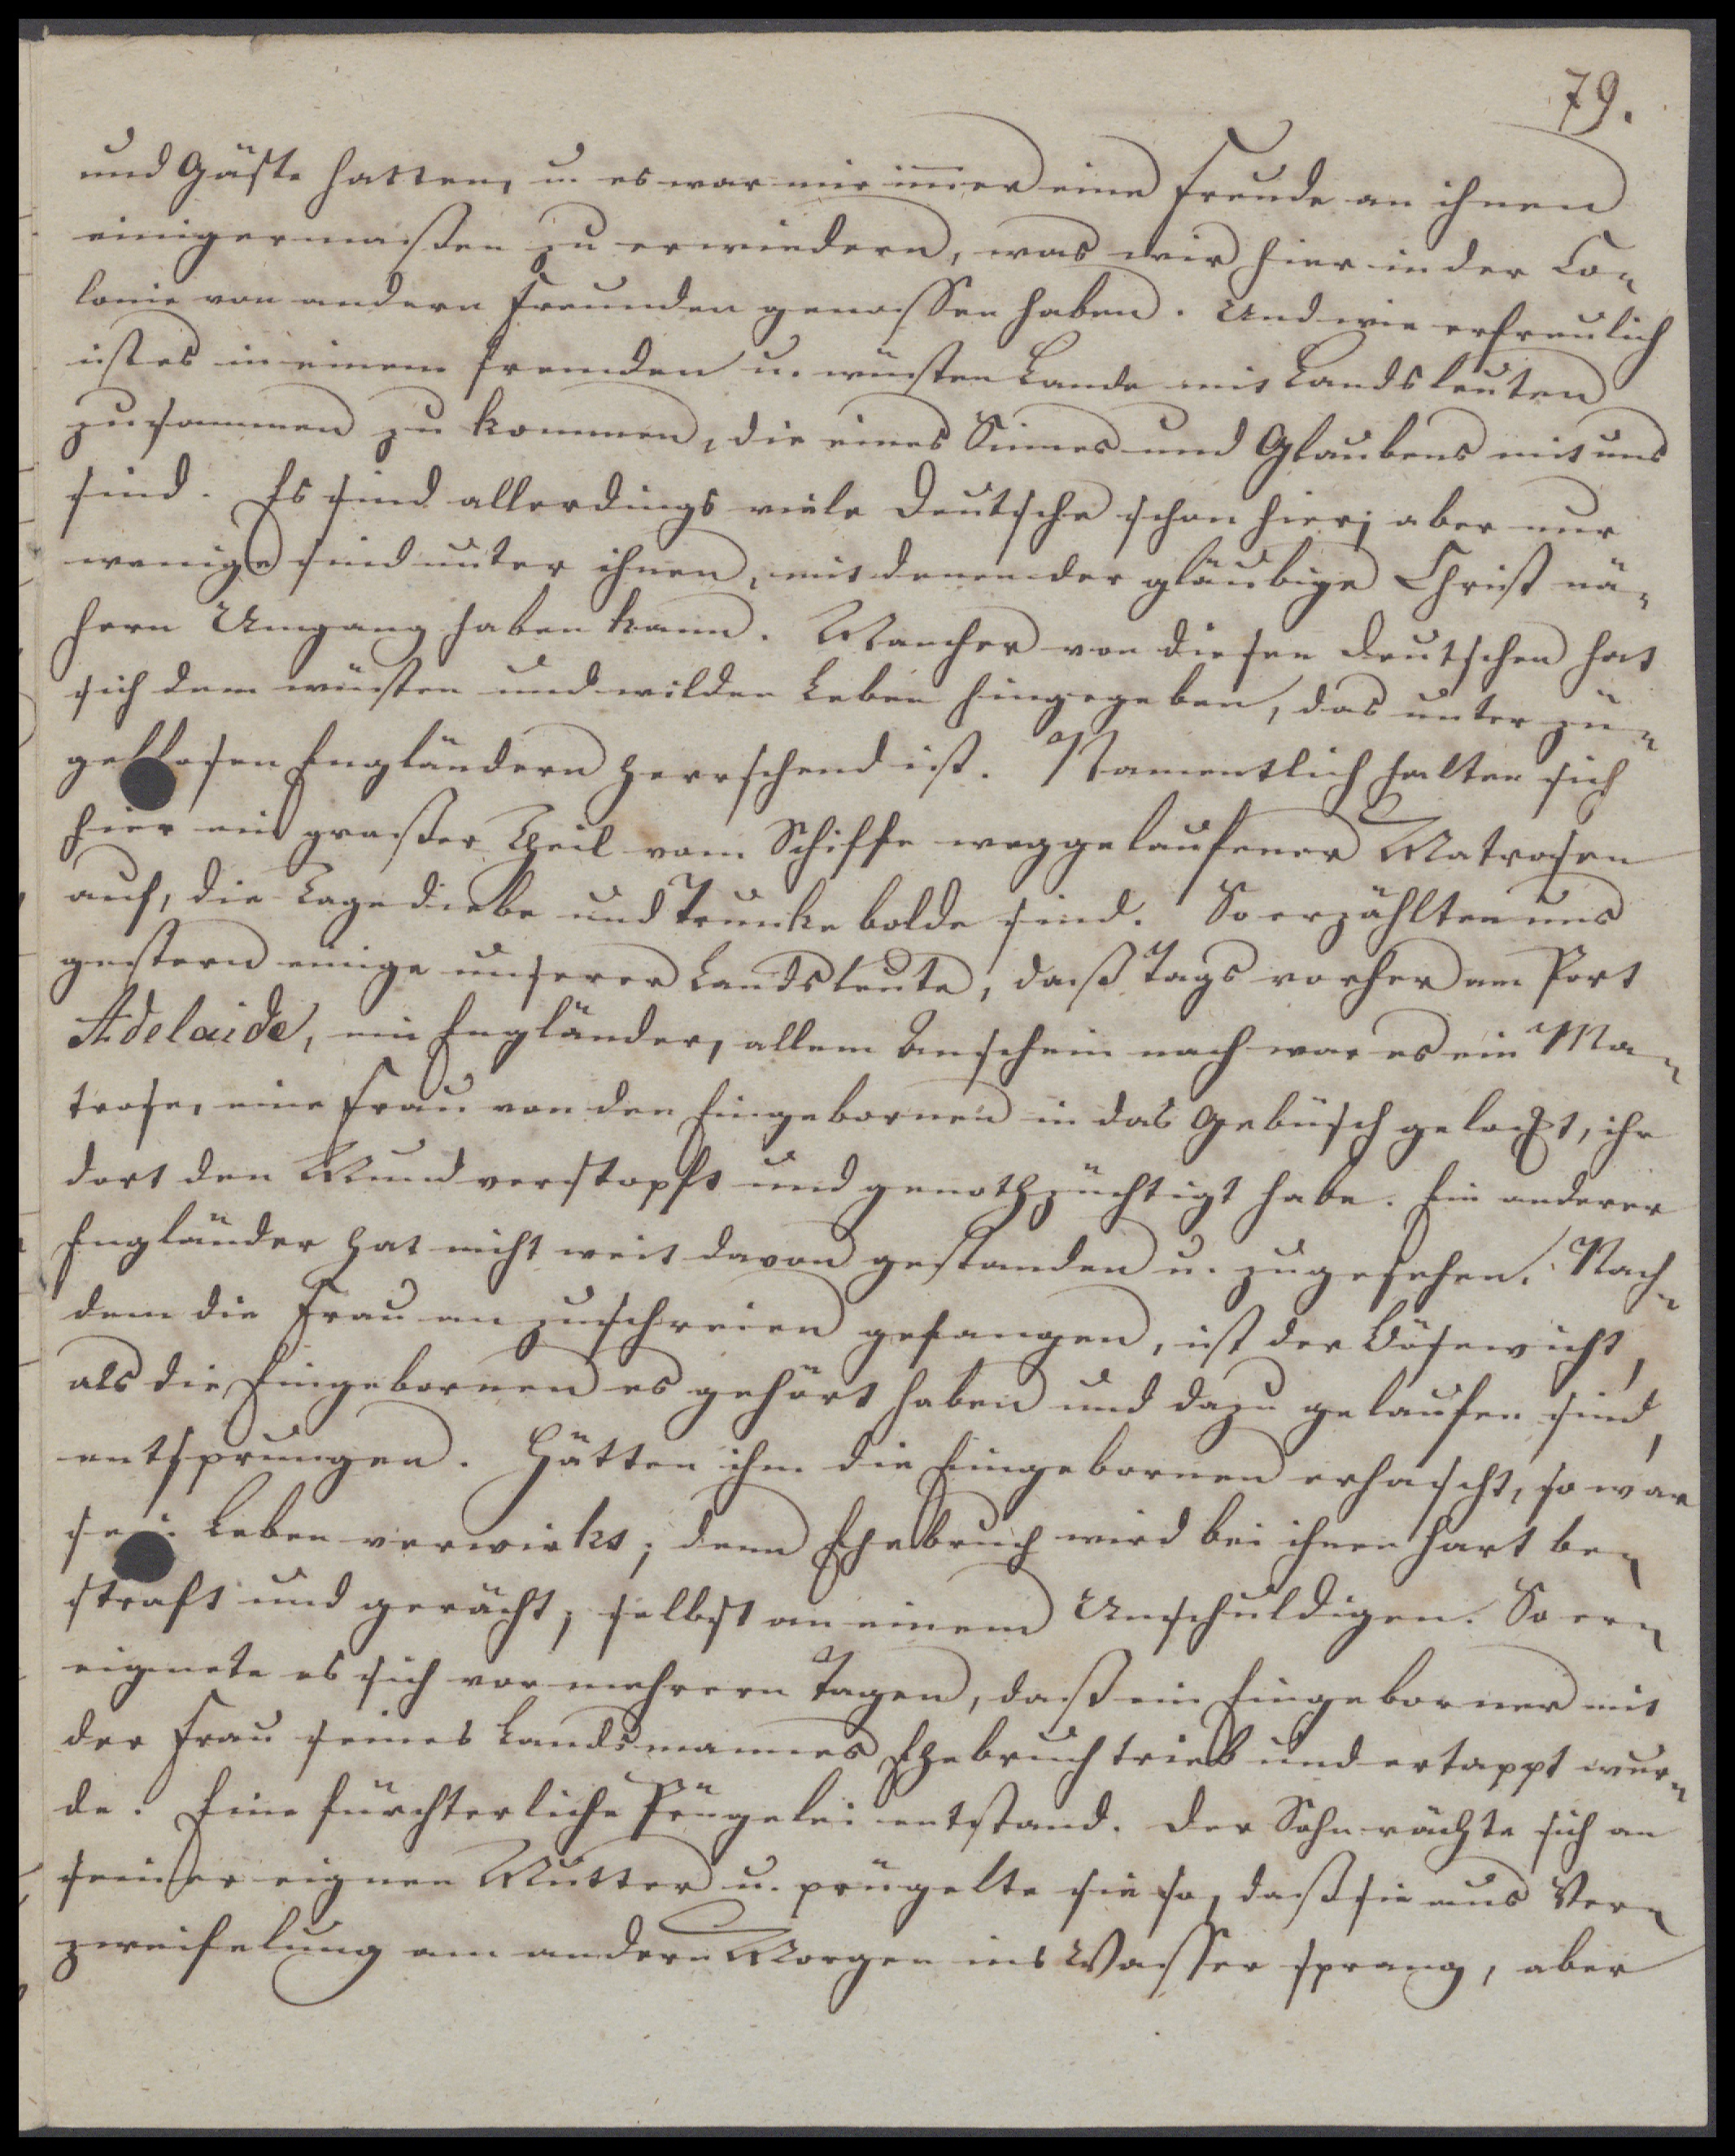 79.
und Gäste hatten, u. es war mir immer eine Freude an ihnen
einigermaßen zu erwiedern, was wir hier in der Co-
lonie von andern Freunden genossen haben. Und wie erfreulich
ist es in einem fremden u. wüsten Lande mit Landsleuten
zusammen zu kommen, die eines Sinnes und Glaubens mit uns
sind. Es sind allerdings viele Deutsche schon hier; aber nur
wenige sind unter ihnen, mit denen der gläubige Christ nä-
hern Umgang haben kann. Mancher von diesen Deutschen hat
sich dem wüsten und wilden Leben hingegeben, das unter zü-
gellosen Engländern herrschend ist. Namentlich halten sich
hier ein großer Theil vom Schiffe weggelaufener Matrosen
auf, die Tagediebe und Trunkebolde sind. So erzählten uns
gestern einige unserer Landsleute, daß Tags vorher am Port
Adelaide, ein Engländer, allem Anschein nach war es ein Ma-
trose, eine Frau von den Eingebornen in das Gebüsch gelockt, ihr
dort den Mund verstopft und genothzüchtigt habe. Ein anderer
Engländer hat nicht weit davon gestanden u. zugesehen. Nach-
dem die Frau an zu schreien gefangen, ist der Bösewicht,
als die Eingebornen es gehört haben und dazu gelaufen sind,
entsprungen. Hätten ihn die Eingebornen erhascht, so war
sein Leben verwirkt; denn Ehebruch wird bei ihnen hart be-
straft und gerächt; selbst an einem Unschuldigen. So er-
eignete es sich vor mehrern Tagen, daß ein Eingeborner mit
der Frau seines Landsmannes Ehebruch trieb und ertappt wur-
de. Eine fürchterliche Prügelei entstand. Der Sohn rächte sich an
seiner eignen Mutter u. prügelte sie so, daß sie aus Ver-
zweifelung am andern Morgen ins Wasser sprang, aber